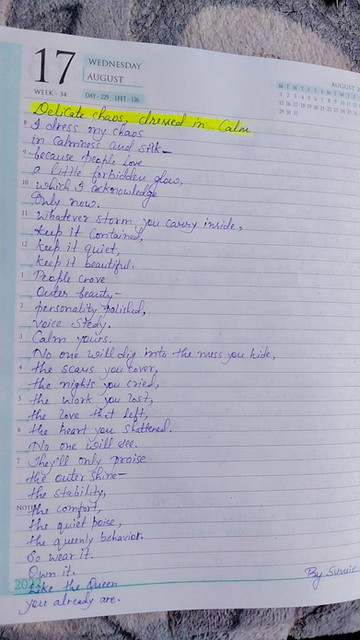 17
WEDNESDAY
AUGUST
WEEK - 34
DAY : 229 LEFT - 136
AUGUST 20
M T W T F S S M T W T F S S
Delicate chaos, dressed in Calm
8 I dress my chaos
in calmness and silk—
9 because people love
a little forbidden glow,
10 which I acknowledge
Only now.
11 Whatever storm you carry inside,
keep it contained,
12 keep it quiet,
keep it beautiful.
1 People crave
Outer beauty—
2 personality polished,
voice stedy.
3 Calm yours.
No one will dig into the mess you hide,
4 the scars you cover,
the nights you cried,
5 the work you lost,
the love that left,
6 the heart you shattered.
No one will see.
7 They'll only praise
the outer shine—
the stability,
NOTES the comfort,
the quiet poise,
the queenly behavior.
So wear it.
Own it.
Like the Queen
you already are.
By